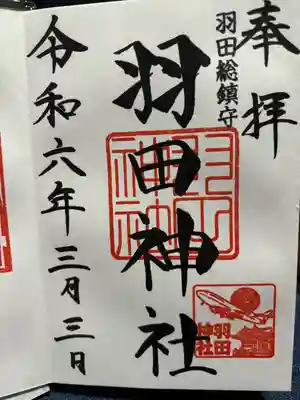 奉拝
羽田総鎮守
羽田神社
令和六年三月三日
羽田
神社